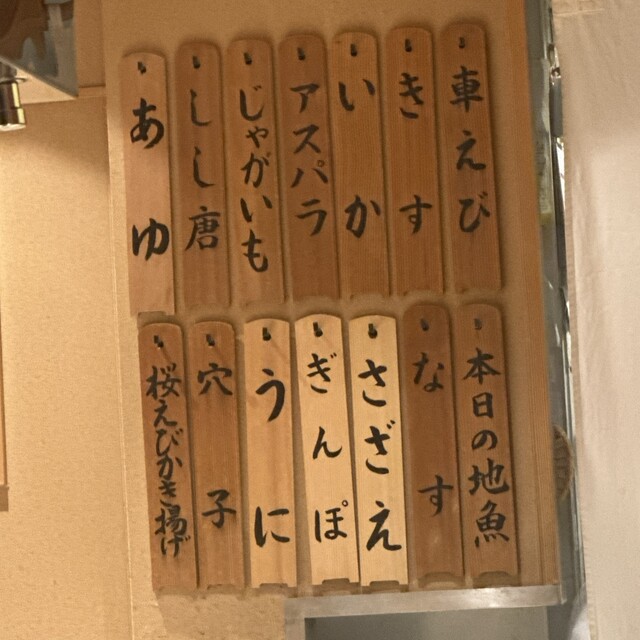 車えび
きす
いか
アスパラ
じゃがいも
しし唐
あゆ
本日の地魚
なす
さざえ
ぎんぽ
うに
穴子
桜えびかき揚げ